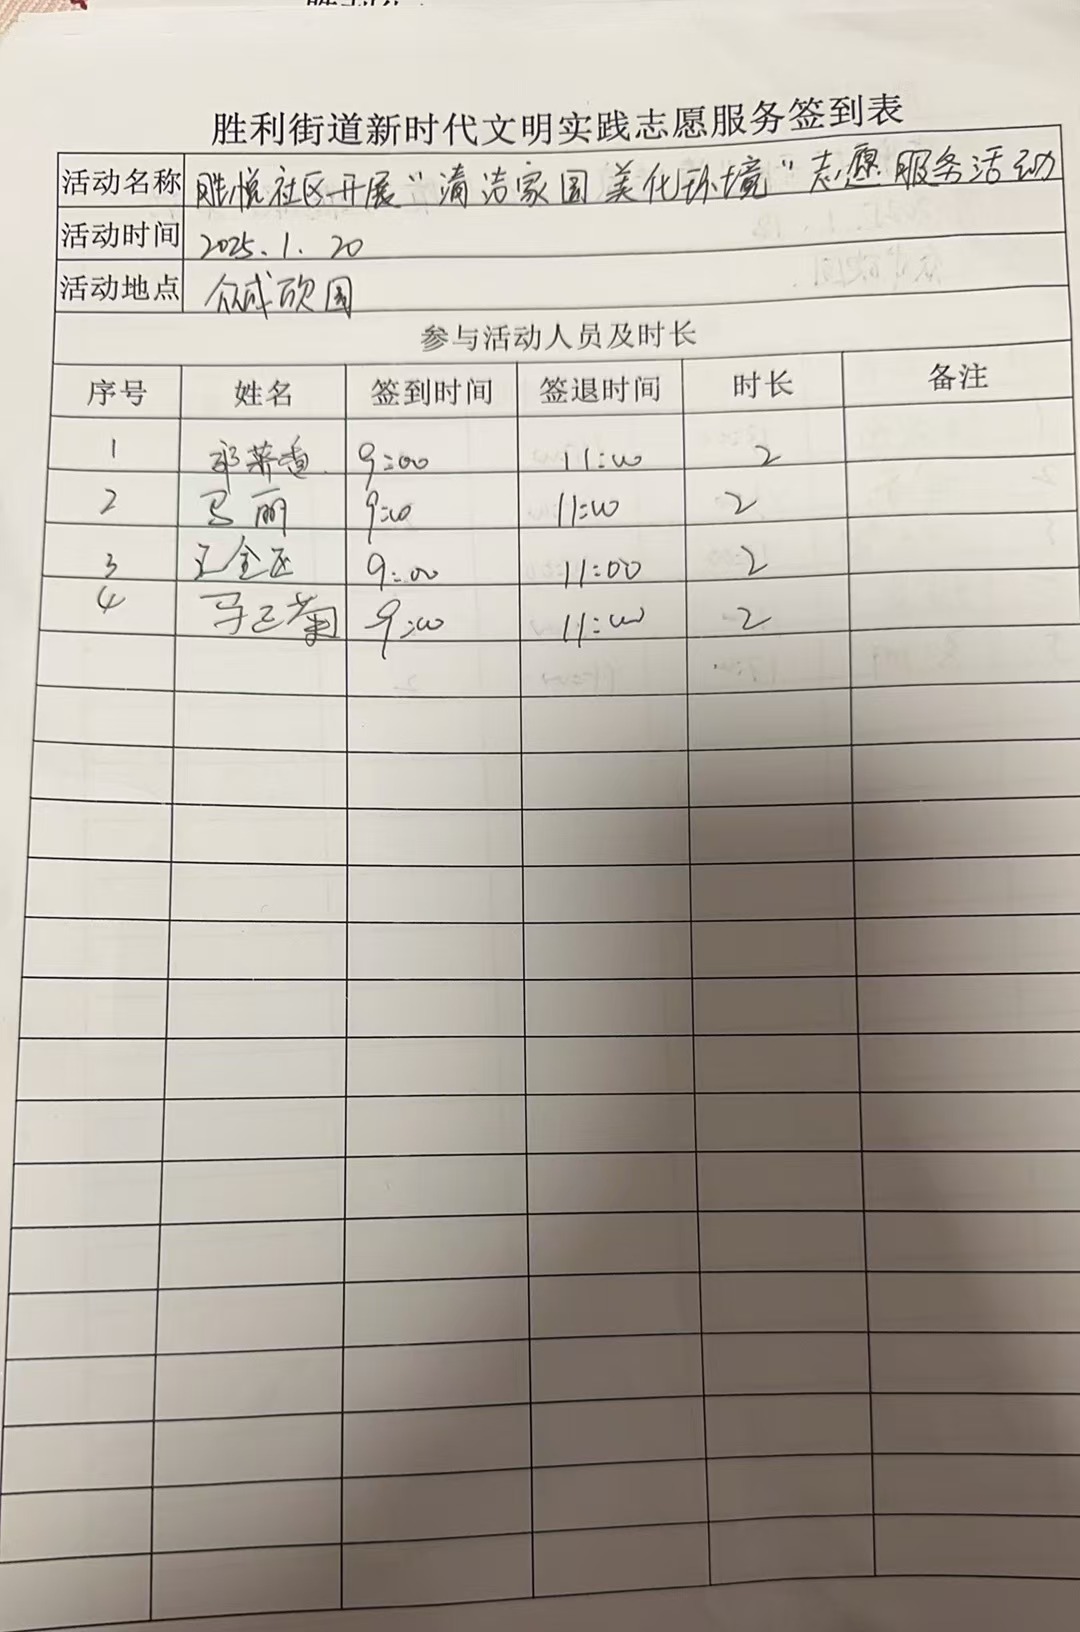 胜利街道新时代文明实践志愿服务签到表
活动名称 胜悦社区开展“清洁家园美化环境”志愿服务活动
活动时间 2025.1.20
活动地点 众成
参与活动人员及时长
序号 姓名 签到时间 签退时间 时长 备注
1 9:00 11:00 2
2 马丽 9:00 11:00 2
3 9:00 11:00 2
4 9:00 11:00 2